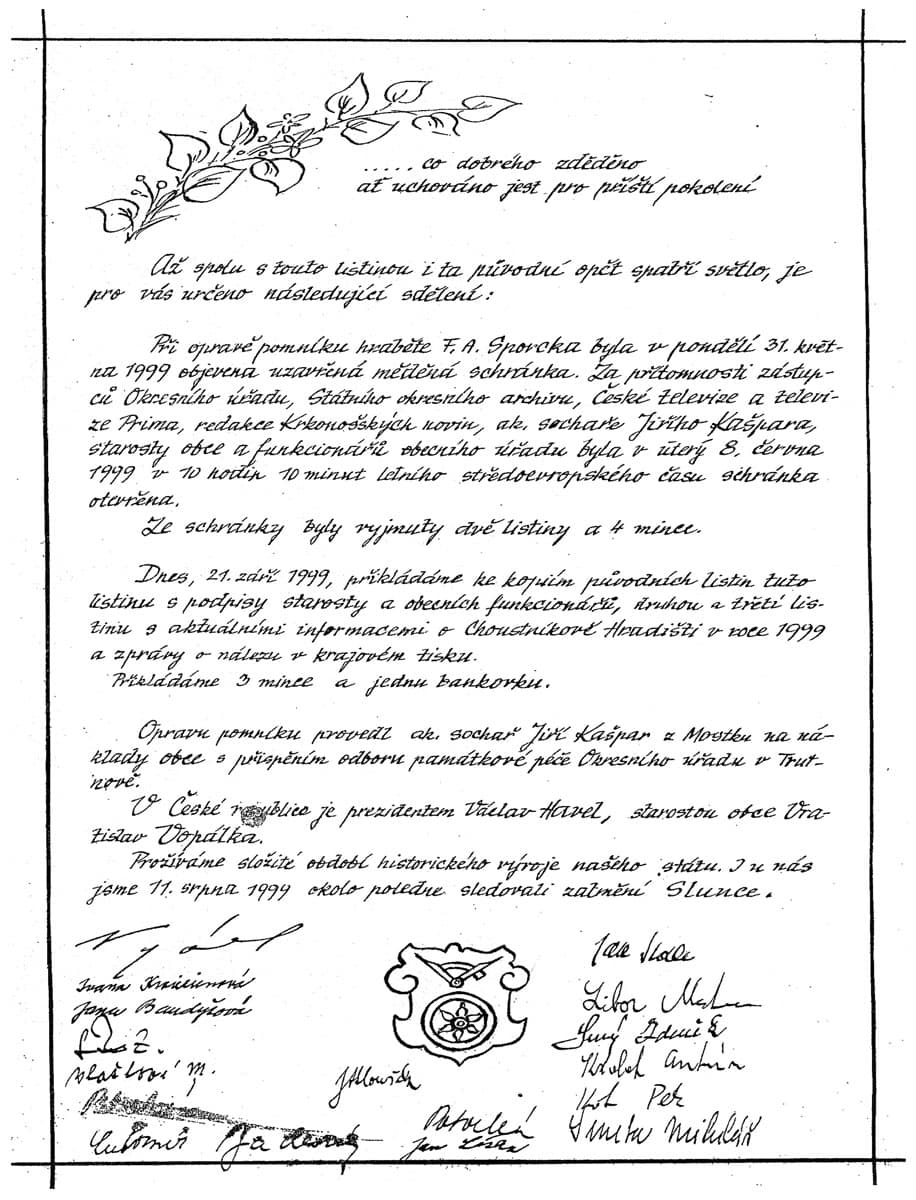 ..... co dobrého zděděno
ať uchováno jest pro příští pokolení
Až spolu s touto listinou i ta původní opět spatří světlo, je
pro vás určeno následující sdělení:
Při opravě pomníku hraběte F. A. Sporcka byla v pondělí 31. květ-
na 1999 objevena uzavřená měděná schránka. Za přítomnosti zástup-
ců Okresního úřadu, Státního okresního archivu, České televize a televi-
ze Prima, redakce Krkonošských novin, ak. sochaře Jiřího Kašpara,
starosty obce a funkcionářů obecního úřadu byla v úterý 8. června
1999 v 10 hodin 10 minut letního středoevropského času schránka
otevřena.
Ze schránky byly vyjmuty dvě listiny a 4 mince.
Dnes, 21. září 1999, přikládáme ke kopiím původních listin tuto
listinu s podpisy starosty a obecních funkcionářů, druhou a třetí lis-
tinu s aktuálními informacemi o Choustníkově Hradišti v roce 1999
a zprávy o nálezu v krajovém tisku.
Přikládáme 3 mince a jednu bankovku.
Opravu pomníku provedl ak. sochař Jiří Kašpar z Mostku na ná-
klady obce s přispěním odboru památkové péče Okresního úřadu v Trut-
nově.
V České republice je prezidentem Václav Havel, starostou obce Vra-
tislav Vopálka.
Prožíváme složité období historického vývoje našeho státu. I u nás
jsme 11. srpna 1999 okolo poledne sledovali zatmění Slunce.
Jan
Ivana
Libor
Jana Baudyšová
Zdeněk
Antonín
Petr
Jan
Smeta Mikuláš